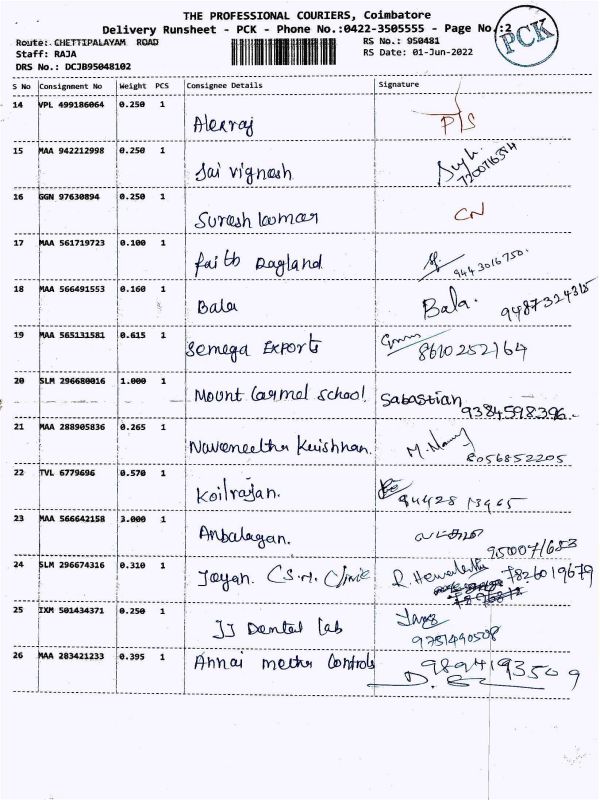 THE PROFESSIONAL COURIERS, Coimbatore
Delivery Runsheet - PCK - Phone No.:0422-3505555 - Page No.:2
PCK
Route: CHETTIPALAYAM ROAD RS No.: 950481
Staff: RAJA RS Date: 01-Jun-2022
DRS No.: DCJB95048102
S No Consignment No Weight PCS Consignee Details Signature
14 VPL 499186064 0.250 1
Alexraj P/S
15 MAA 942212998 0.250 1
Sai Vignesh
16 GGN 97630894 0.250 1
Suresh Kumar CN
17 MAA 561719723 0.100 1
Faith 9443016750.
18 MAA 566491553 0.160 1
Bala Bala. 9487324315
19 MAA 565131581 0.615 1
Semega Exports 8610252164
20 SLM 296680016 1.000 1
Mount Carmel School. Sabastian
9384598396.
21 MAA 288905836 0.265 1
Navaneetha Krishnan. 8056852205
22 TVL 6779696 0.570 1
Koilrajan. 94428 13965
23 MAA 566642158 3.000 1
Anbalagan.
24 SLM 296674316 0.310 1
Jayan. (S.M. Clinic 7826019679
25 IXM 501434371 0.250 1
JJ Dental Lab
9751490508
26 MAA 283421233 0.395 1
Annai Controls 9894193509